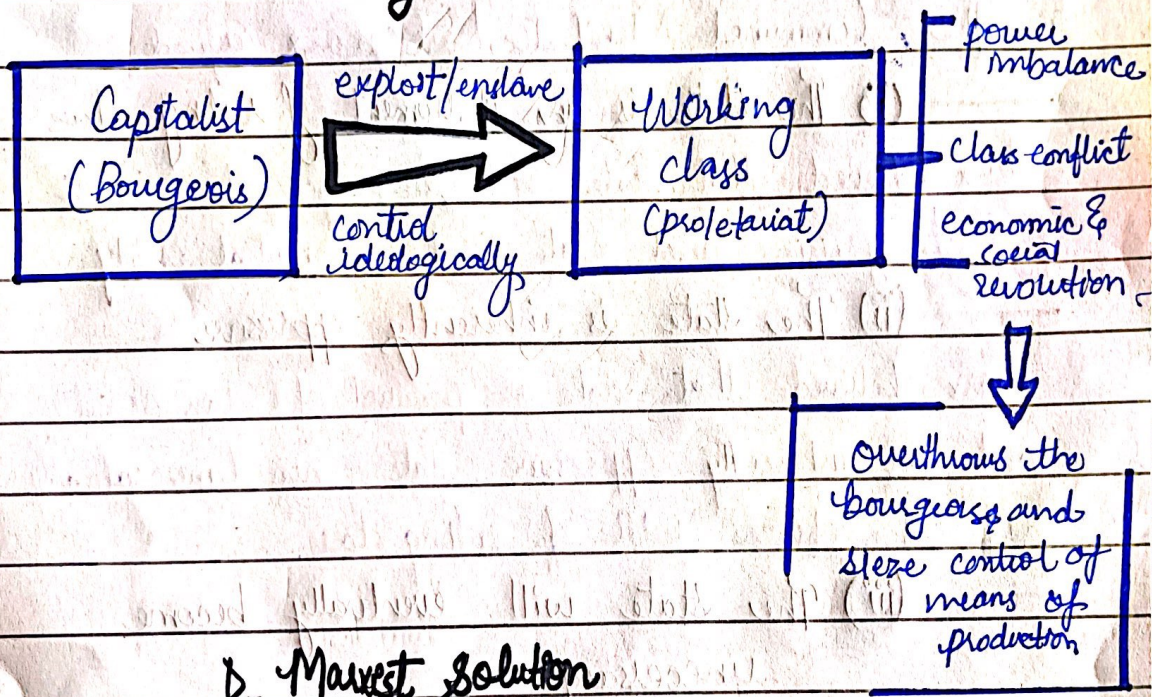 Capitalist
(Bourgeois)
exploit/enslave
control
ideologically
Working
class
(proletariat)
power
imbalance
class conflict
economic &
social
revolution
Overthrows the
and
sieze control of
means of
production
Marxist Solution